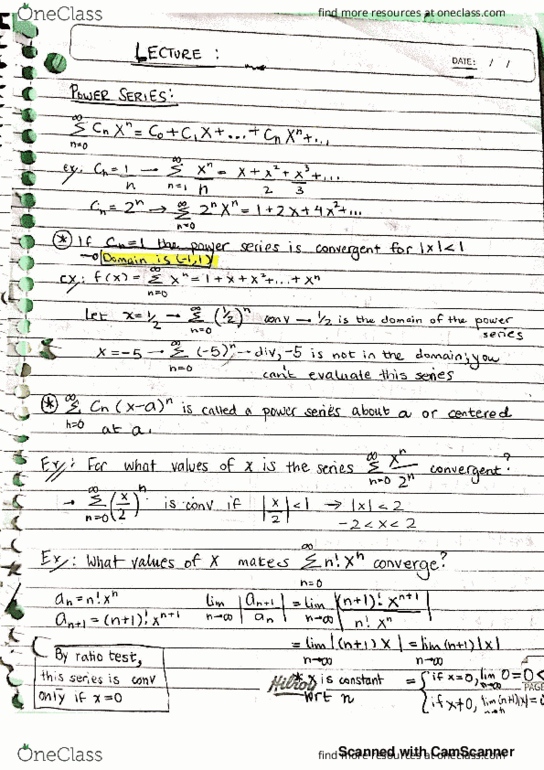 OneClass
find more resources at oneclass.com
LECTURE :
DATE: / /
POWER SERIES:
∞ Σ n=0 Cn X^n = C0 + C1X + ... + Cn X^n + ...
ex. Cn = 1/n → ∞ Σ n=1 X^n/n = X + X^2/2 + X^3/3 + ...
Cn = 2^n → ∞ Σ n=0 2^n X^n = 1 + 2X + 4X^2 + ...
* If Cn=1 the power series is convergent for |X| < 1
→ Domain is (-1,1)
ex: f(x) = ∞ Σ n=0 X^n = 1 + X + X^2 + ... + X^n
Let X = 1/2 → ∞ Σ n=0 (1/2)^n conv → 1/2 is the domain of the power series
X = -5 → ∞ Σ n=0 (-5)^n → div, -5 is not in the domain; you
can't evaluate this series
* ∞ Σ n=0 Cn (x-a)^n is called a power series about a or centered
at a.
Ex// For what values of x is the series ∞ Σ n=0 X^n/2^n convergent?
→ ∞ Σ n=0 (x/2)^n is conv if |x/2| < 1 → |x| < 2
-2 < x < 2
Ex// What values of X makes ∞ Σ n=0 n! X^n converge?
an = n! X^n lim n→∞ |an+1/an| = lim n→∞ |(n+1)! X^n+1 / n! X^n|
an+1 = (n+1)! X^n+1
= lim n→∞ |(n+1) X| = lim n→∞ (n+1)|X|
By ratio test,
this series is conv
only if x=0
Hilroy
* x is constant
wrt n
= { if x=0, lim n→∞ 0 = 0 <
if x≠0, lim n→∞ (n+1)|x| =
PAGE
Scanned with CamScanner
OneClass
find more resources at oneclass.com